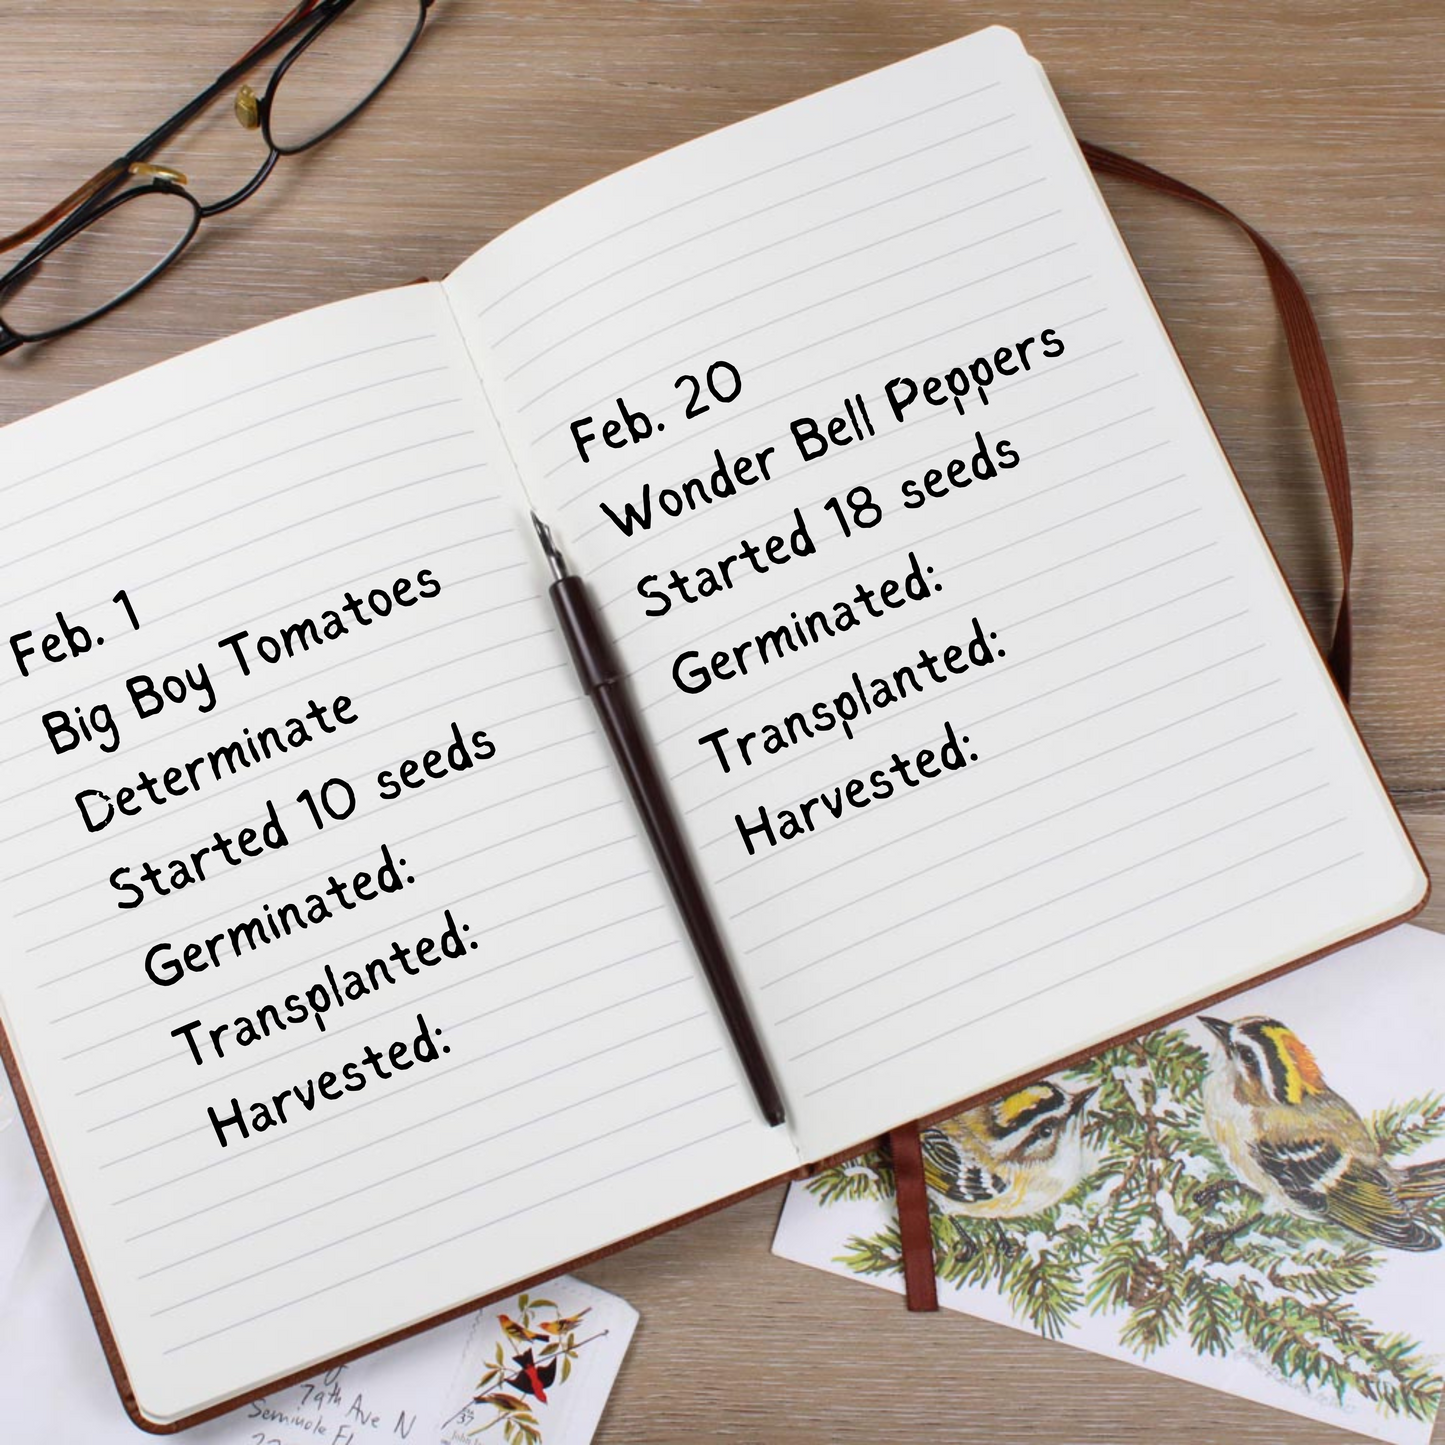 Feb. 1
Big Boy Tomatoes
Determinate
Started 10 seeds
Germinated:
Transplanted:
Harvested:
Feb. 20
Wonder Bell Peppers
Started 18 seeds
Germinated:
Transplanted:
Harvested:
79th Ave N
Seminole Fl
37